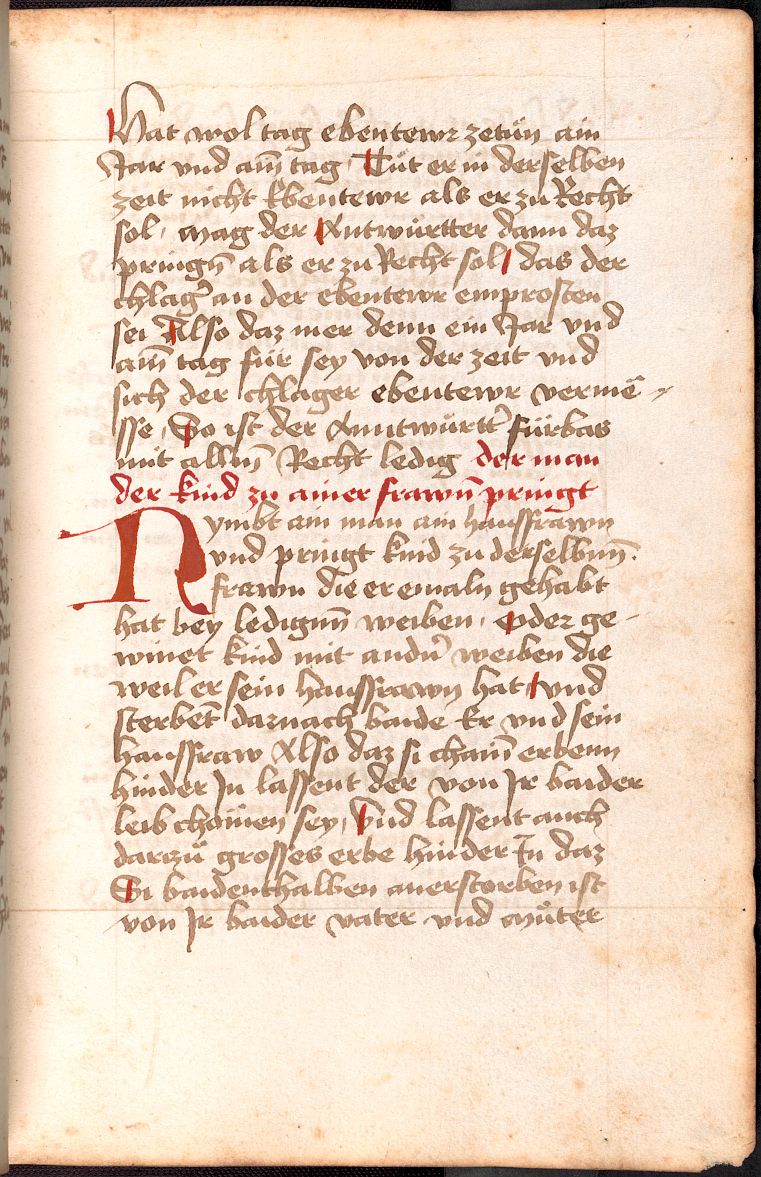 Hat wol tag ebentewr zetün ain
Jar vnd aiñ tag Tüt er in derselben
zeit nicht Ebentewr als er zu Recht
sol, mag der Antwürtter dann daz
pringñ als er zu Recht sol das der
chlag̛ an der ebentewr emprosten
sei Also daz mer denn ein Jar vnd
aiñ tag für sey von der zeit vnd
sich der chlager ebentewr vermë-
sse, So ist der Anntwürtt̛ fürbas
mit allnn̄ Recht ledig der man
der kind zu ainer frawn̄ pringt
Nymbt ain man ain hawsfrawn
vnd pringt kind zu derselbnn̄.
frawn die er emaln gehabt
hat bey ledignn̄ weiben, oder ge-
winet kind mit andn̛ weiben die
weil er sein hawsfrawn hat vnd
sterbent̄ darnach baide Er vnd sein
hawsfraw Also daz si chain̄ erbenn
hinder In lassent der von Ir baider
leib chömen sey, Vnd lassent auch
darzů grosses erbe hinder In daz
Si baidenthalben anerstorben ist
von Ir baider vater vnd můter